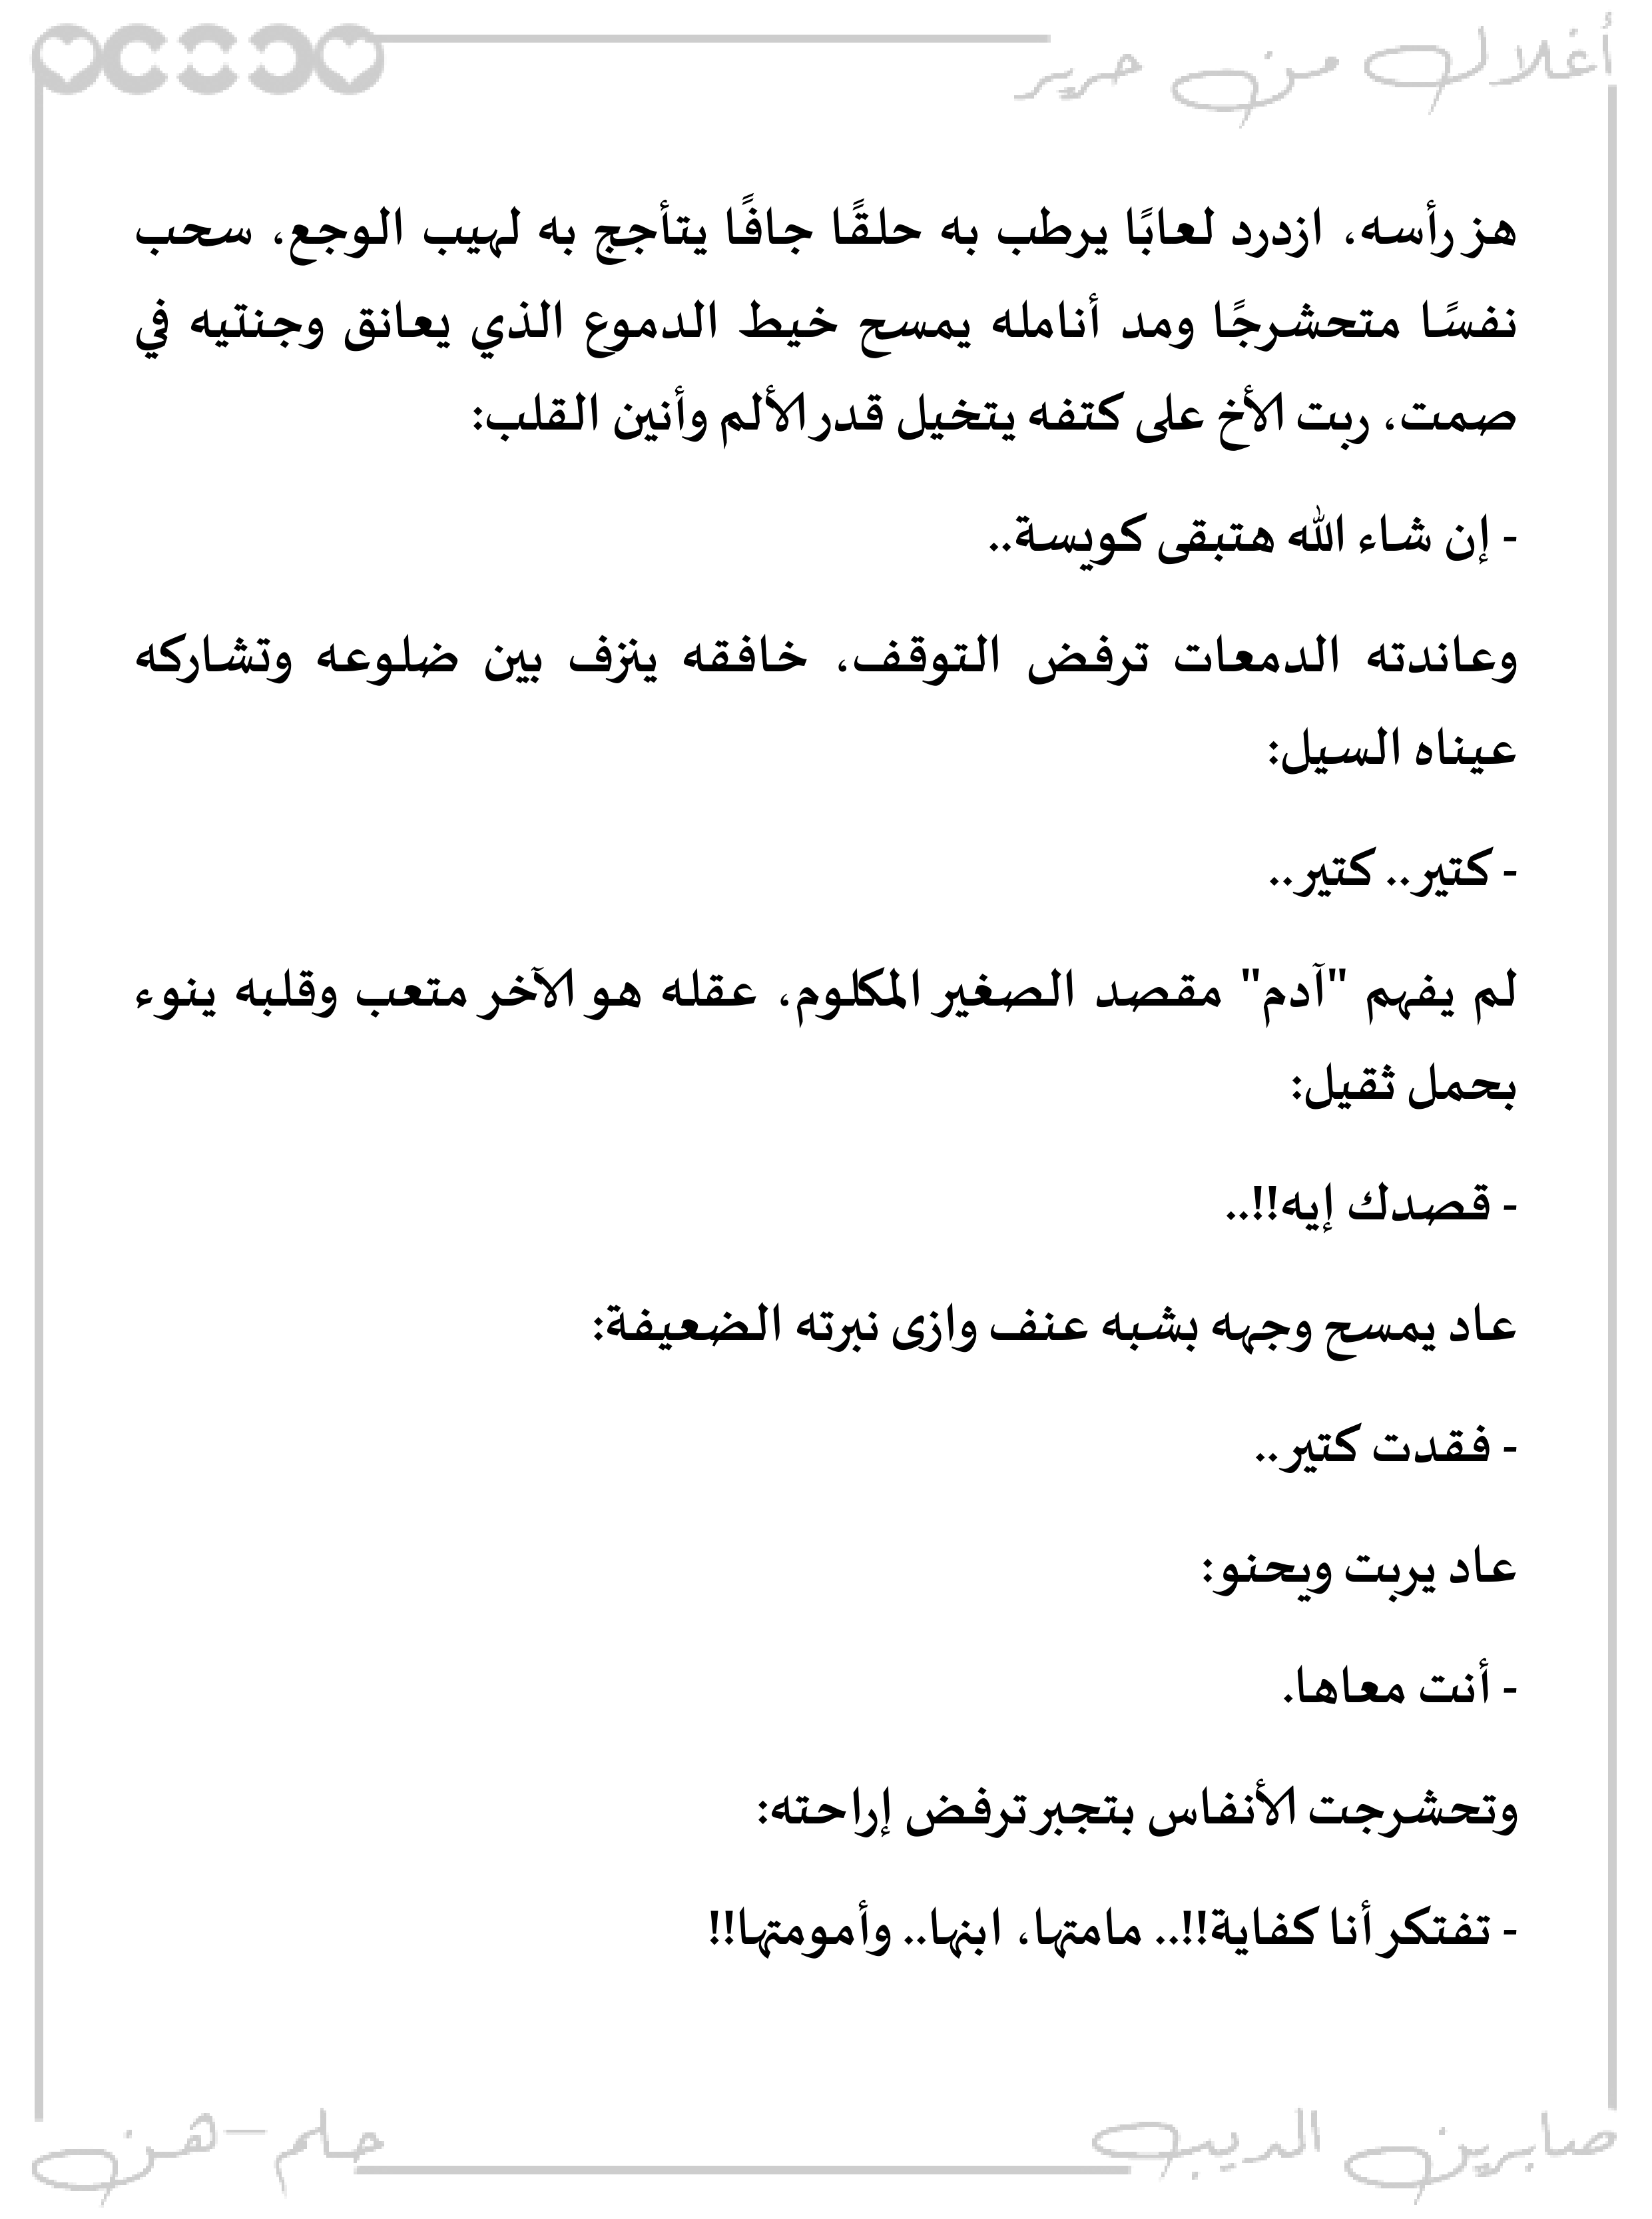 أغلال من حرير
هز رأسه، ازدرد لعابًا يرطب به حلقًا جافًا يتأجج به لهيب الوجع، سحب
نفسًا متحشرجًا ومد أنامله يمسح خيط الدموع الذي يعانق وجنتيه في
صمت، ربت الأخ على كتفه يتخيل قدر الألم وأنين القلب:
- إن شاء الله هتبقى كويسة..
وعاندته الدمعات ترفض التوقف، خافقه ينزف بين ضلوعه وتشاركه
عيناه السيل:
- كتير.. كتير..
لم يفهم "آدم" مقصد الصغير المكلوم، عقله هو الآخر متعب وقلبه ينوء
بحمل ثقيل:
- قصدك إيه!!..
عاد يمسح وجهه بشبه عنف وازى نبرته الضعيفة:
- فقدت كتير..
عاد يربت ويحنو:
- أنت معاها.
وتحشرجت الأنفاس بتجبر ترفض إراحته:
- تفتكر أنا كفاية!!.. مامتها، ابنها.. وأمومتها!!
صابرين الديب
حلم-هن